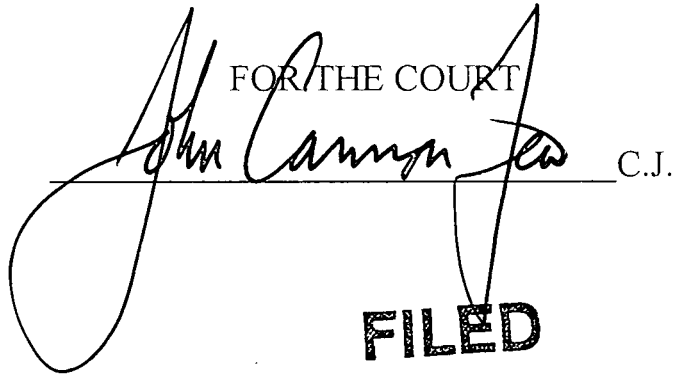 FOR THE COURT
John Cannon Few C.J.
FILED